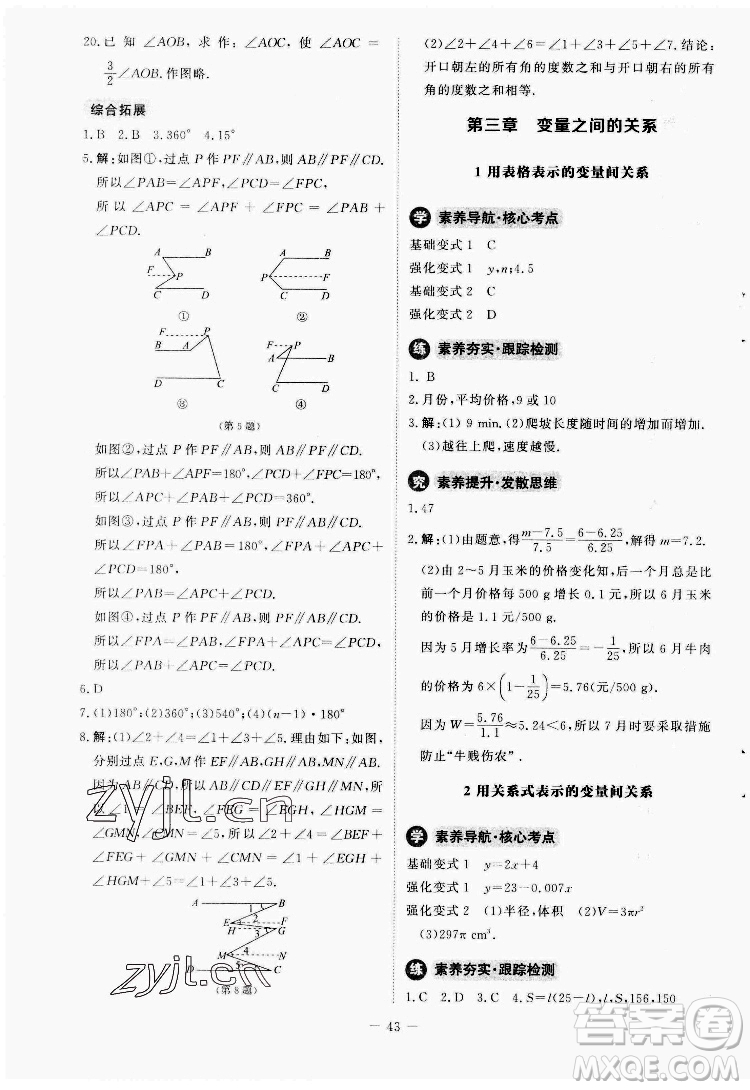 20.已知∠AOB,求作:∠AOC,使∠AOC=
3/2∠AOB.作图略.
综合拓展
1.B 2.B 3.360° 4.15°
5.解:如图①,过点P作PF∥AB,则PF∥AB∥CD.
所以∠PAB=∠APF,∠PCD=∠FPC,
所以∠APC=∠APF+∠FPC=∠PAB+
∠PCD.
A B
F P
C D
①
A B
P F
C D
②
F P
B A
D C
③
F P
A B
C D
④
(第5题)
如图②,过点P作PF∥AB,则PF∥AB∥CD.
所以∠PAB+∠APF=180°,∠FPC+∠PCD=180°,
所以∠APC+∠PAB+∠PCD=360°.
如图③,过点P作PF∥AB,则PF∥AB∥CD.
所以∠FPA+∠PAB=180°,∠FPA+∠APC
+∠PCD=180°,
所以∠APC+∠PCD=∠PAB.
如图④,过点P作PF∥AB,则PF∥AB∥CD.
所以∠FPA=∠PAB,∠FPA+∠APC=∠PCD,
所以∠PAB+∠APC=∠PCD.
6.D
7.(1)180°;(2)360°;(3)540°;(4)(n-1)·180°
8.解:(1)∠2+∠4=∠1+∠3+∠5.理由如下:如图,
分别过点E,G,M作EF∥AB,GH∥AB,MN∥
AB.因为AB∥CD,所以AB∥CD∥EF∥GH∥MN.
所以∠1=∠BEF,∠FEG=∠EGH,∠HGM=
∠GMN,∠CMN=∠5,所以∠2+∠4=∠BEF+
∠FEG+∠GMN+∠CMN=∠1+∠EGH+
∠HGM+∠5=∠1+∠3+∠5.
A 1 B
E 2 F
H 3 G
M 4 N
D 5 C
(第8题)
(2)∠2+∠4+∠6=∠1+∠3+∠5+∠7.结论:
开口朝左的所有角的度数之和与开口朝右的所有
角的度数之和相等.
第三章 变量之间的关系
1 用表格表示的变量间关系
学 素养导航·核心考点
基础变式1 C
强化变式1 y,n;4.5
基础变式2 C
强化变式2 D
练 素养夯实·跟踪检测
1.B
2.月份,平均价格,9或10
3.解:(1)9 min.(2)爬坡长度随时间的增加而增加.
(3)越往上爬,速度越慢.
究 素养提升·发散思维
1.47
2.解:(1)由题意,得(m-7.5)/7.5=(6-6.25)/6.25,解得m=7.2.
(2)由2~5月玉米的价格变化知,后一个月总是比
前一个月价格每500 g增长0.1元,所以6月玉米
的价格是1.1元/500 g.
因为5月增长率为(6-6.25)/6.25=-1/25,所以6月牛肉
的价格为6×(1-1/25)=5.76(元/500 g).
因为W=5.76/1.1≈5.24<6,所以要采取措施
防止“牛贱伤农”.
2 用关系式表示的变量间关系
学 素养导航·核心考点
基础变式1 y=2x+4
强化变式1 y=23-0.007x
强化变式2 (1)半径,体积 (2)V=3πr²
(3)297π cm³.
练 素养夯实·跟踪检测
1.C 2.D 3.C 4.S=l(25-l),l,S,156,150
— 43 —
zyjl.cn
zyjl.cn
答案卷
MXQE.COM